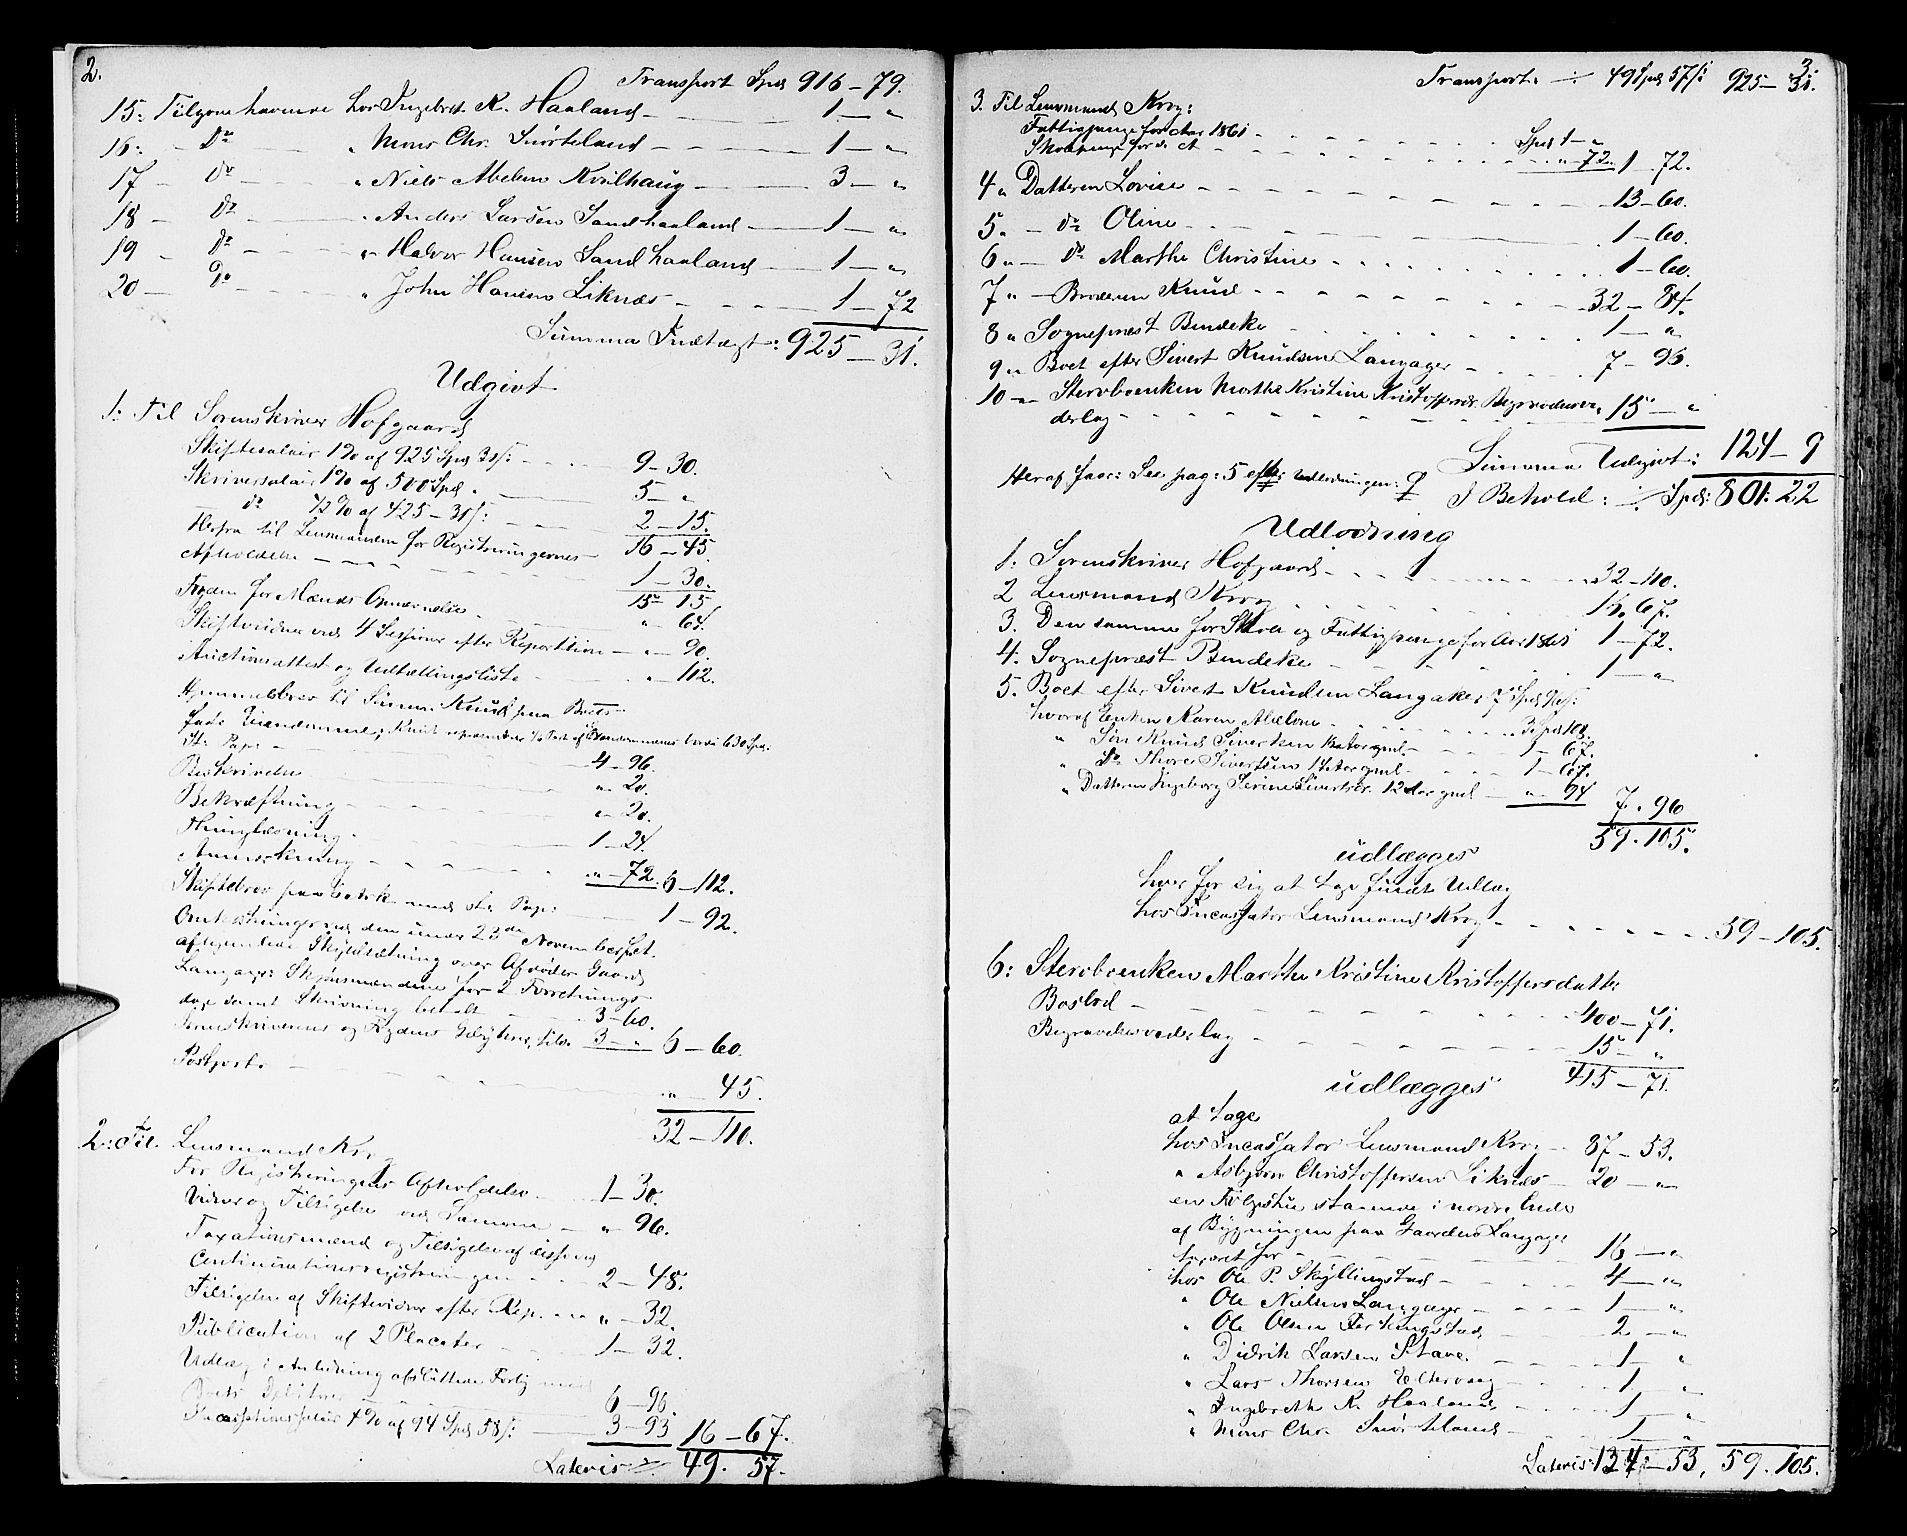 2.
Transport Spd 916 – 79.
15: Tilgodehavende hos Ingebret K. Haaland – 1 – "
16: – Do " Mons Chr. Snørteland – 1 – "
17 – Do " Niels Abelsen Kvilhaug – 3 – "
18 – Do " Anders Larsen Sandhaaland – 1 – "
19 – Do " Halvor Hansen Sandhaaland – 1 – "
20 – Do " John Hansen Liknæs – 1 – 72
Summa Indtægt: 925 – 31.
Udgivt
1: Til Sorenskriver Hofgaard
Skiftesalair 1% af 925 Spd 31 s: 9 – 30.
Skriversalair 1% af 500 Spd. 5 – "
do 1/2 % af 425 – 31 s: 2 – 15.
16 – 45
Herfra til Lensmanden for Registreringernes
Afholdelse 1 – 30.
15 – 15.
for Mænds Opnævnelse " 64.
Skiftevidner ved 4 Sessioner efter Repartition – " – 90.
Auctionsattest og Udtællingsliste " – 112.
Hjemmelsbrev til Sønnen Knud paa Boets
faste Eiendomme, Knud
St. Papr 4 – 96.
Beskrivelse " 20.
Bekræftning " 20.
Thinglæsning 1 – 24.
Anmærkning " – 72. 6 – 112.
Skiftebrev paa Extrk med st. Papr: 1 – 92.
Omkostninger ved den under 23de November f.A.
afhjemlede Skyldsætning over Afdødes Gaard
Langager: Skjønsmændene for 2 Forretnings-
dage samt Skrivning betalt 3 – 60.
Sorenskriverens og 3 – " 6 – 60.
Postporto " 45.
32 – 110.
2: Til. Lensmand Krog
For Registreringens Afholdelse 1 – 30.
Vidner og Tilsigelse ved Samme " 96.
Taxationsmænd og Tilsigelse af disse ved
Continuationsregistreringen 2 – 48.
Tilsigelse af Skiftevidner efter Rep. " – 32.
Publication af 2 Placater 1 – 32.
Udlæg i Anledning afsluttede Forlig med
Boets Debitorer 6 – 96.
Incassationssalair 4% af 94 Spd 58 s: 3 – 93 16 – 67.
Lateris ./. 49. 57.
3.
Transport: ./. 49 Spd 57 s: 925 – 31.
3. Til Lensmand Krog:
Fattigpenge for Aar 1861 Spd 1 – "
Skolepenge for do " 72 1 – 72.
4 " Datteren Lovise 13 – 60.
5. " – do Oline 1 – 60.
6 " – do Marthe Christine 1 – 60.
7 " – Broderen Knud 32 – 84.
8 " Sognepræst Bendeke 1 – "
9 " Boet efter Sivert Knudsen Langager 7 – 96.
10 – " Stervboenken Marthe Kristine Kristoffersdr. Begravelsesve-
derlag 15 – "
Summa Udgivt: 124 – 9
Heraf paar: See pag: 5 efter Udlodningen: 9 I Behold: ./. Spd: 801. 22
Udlodning
1: Sorenskriver Hofgaard 32 – 110.
2 Lensmand Krog 16. 67.
3. Den samme for Skole og Fattigpenge for Aar 1861 1 – 72.
4. Sognepræst Bendeke 1 – "
5. Boet efter Sivert Knudsen Langaker 7 Spd 96 s:
hvoraf Enken Karen Malene 3 Spd 108.
" Søn Knud Sivertsen Aar gml 1 – 67.
" do Thore Sivertsen 14 Aar gml 1 – 67.
" Datteren Ingeborg Serine Sivertsdr. 12 Aar gml " 94 7. 96
59. 105.
udlægges
hver for sig at tage fuldt Udlæg
hos Incassator Lensmand Krog 59 – 105.
6: Stervboenken Marthe Kristine Kristoffersdatter
Boslod 400 – 71.
Begravelsesvederlag 15 – "
415 – 71.
udlægges
at tage
hos Incassator Lensmand Krog 87 – 53.
" Asbjørn Christoffersen Liknæs 20 – "
en Følgestue staaende i nordre Ende
af Bygningen paa Gaarden Langager
taxeret for 16 – "
hos Ole P. Skyllingstad 4 – "
" Ole Nielsen Langager 1 – "
" Ole Olsen Ferkingstad 2 – "
" Didrik Larsen Stave 1 – "
" Lars Thorsen Eltervaag 1 "
" Ingebreth K. Haaland 1 – "
" Mons Chr. Snørteland 1 – "
Lateris: 134 – 53. 59. 105.